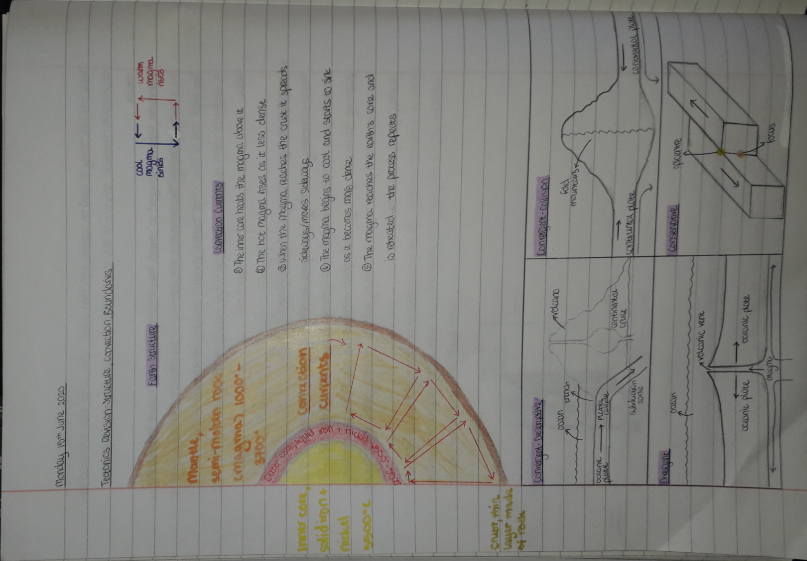 Monday 15th June 2020
Tectonics Revision Structure, Convection, Boundaries
Earth Structure
cool
magma
sinks
warm
magma
rises
Mantle,
semi-molten rock
(magma) 1000°-
3700°
Outer core, liquid iron + nickel
Inner core,
solid iron +
nickel
5500°C
Convection
currents
crust, thin
layer made
of rock
Convection Currents
① The inner core heats the magma above it
② The hot magma rises as it less dense
③ when the magma reaches the crust it spreads
sideways/moves sideways
④ The magma begins to cool and starts to sink
as it becomes more dense
⑤ The magma reaches the earths core and
is reheated the process repeats
Convergent-Destructive
ocean trench
volcano
oceanic
plate
continental
crust
subduction
zone
Convergent-Collision
fold
mountains
continental plate
continental plate
Divergent
ocean
volcanic vent
oceanic plate
oceanic plate
magma
Conservative
epicentre
focus